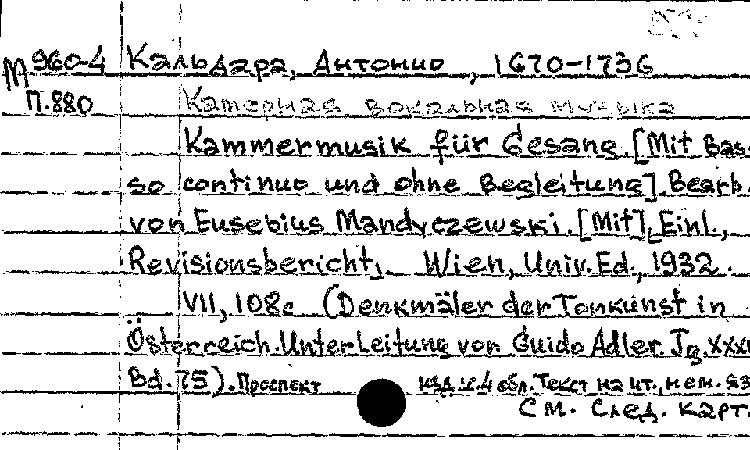 М 960-4 Кальдара, Антонио, 1670-1736
П.880 Камерная вокальная музыка
Kammermusik für Gesang. [Mit Bas-
so continuo und ohne Begleitung]. Bearb.
von Eusebius Mandyczewski. [Mit] Einl.,
Revisionsbericht. Wien, Univ. Ed., 1932.
VII, 108 c (Denkmäler der Tonkunst in
Österreich. Unter Leitung von Guido Adler. Jg. XXXI
Bd. 75). Проспект изд. и. 4 обл. Текст на ит., нем. яз
См. след. карт.